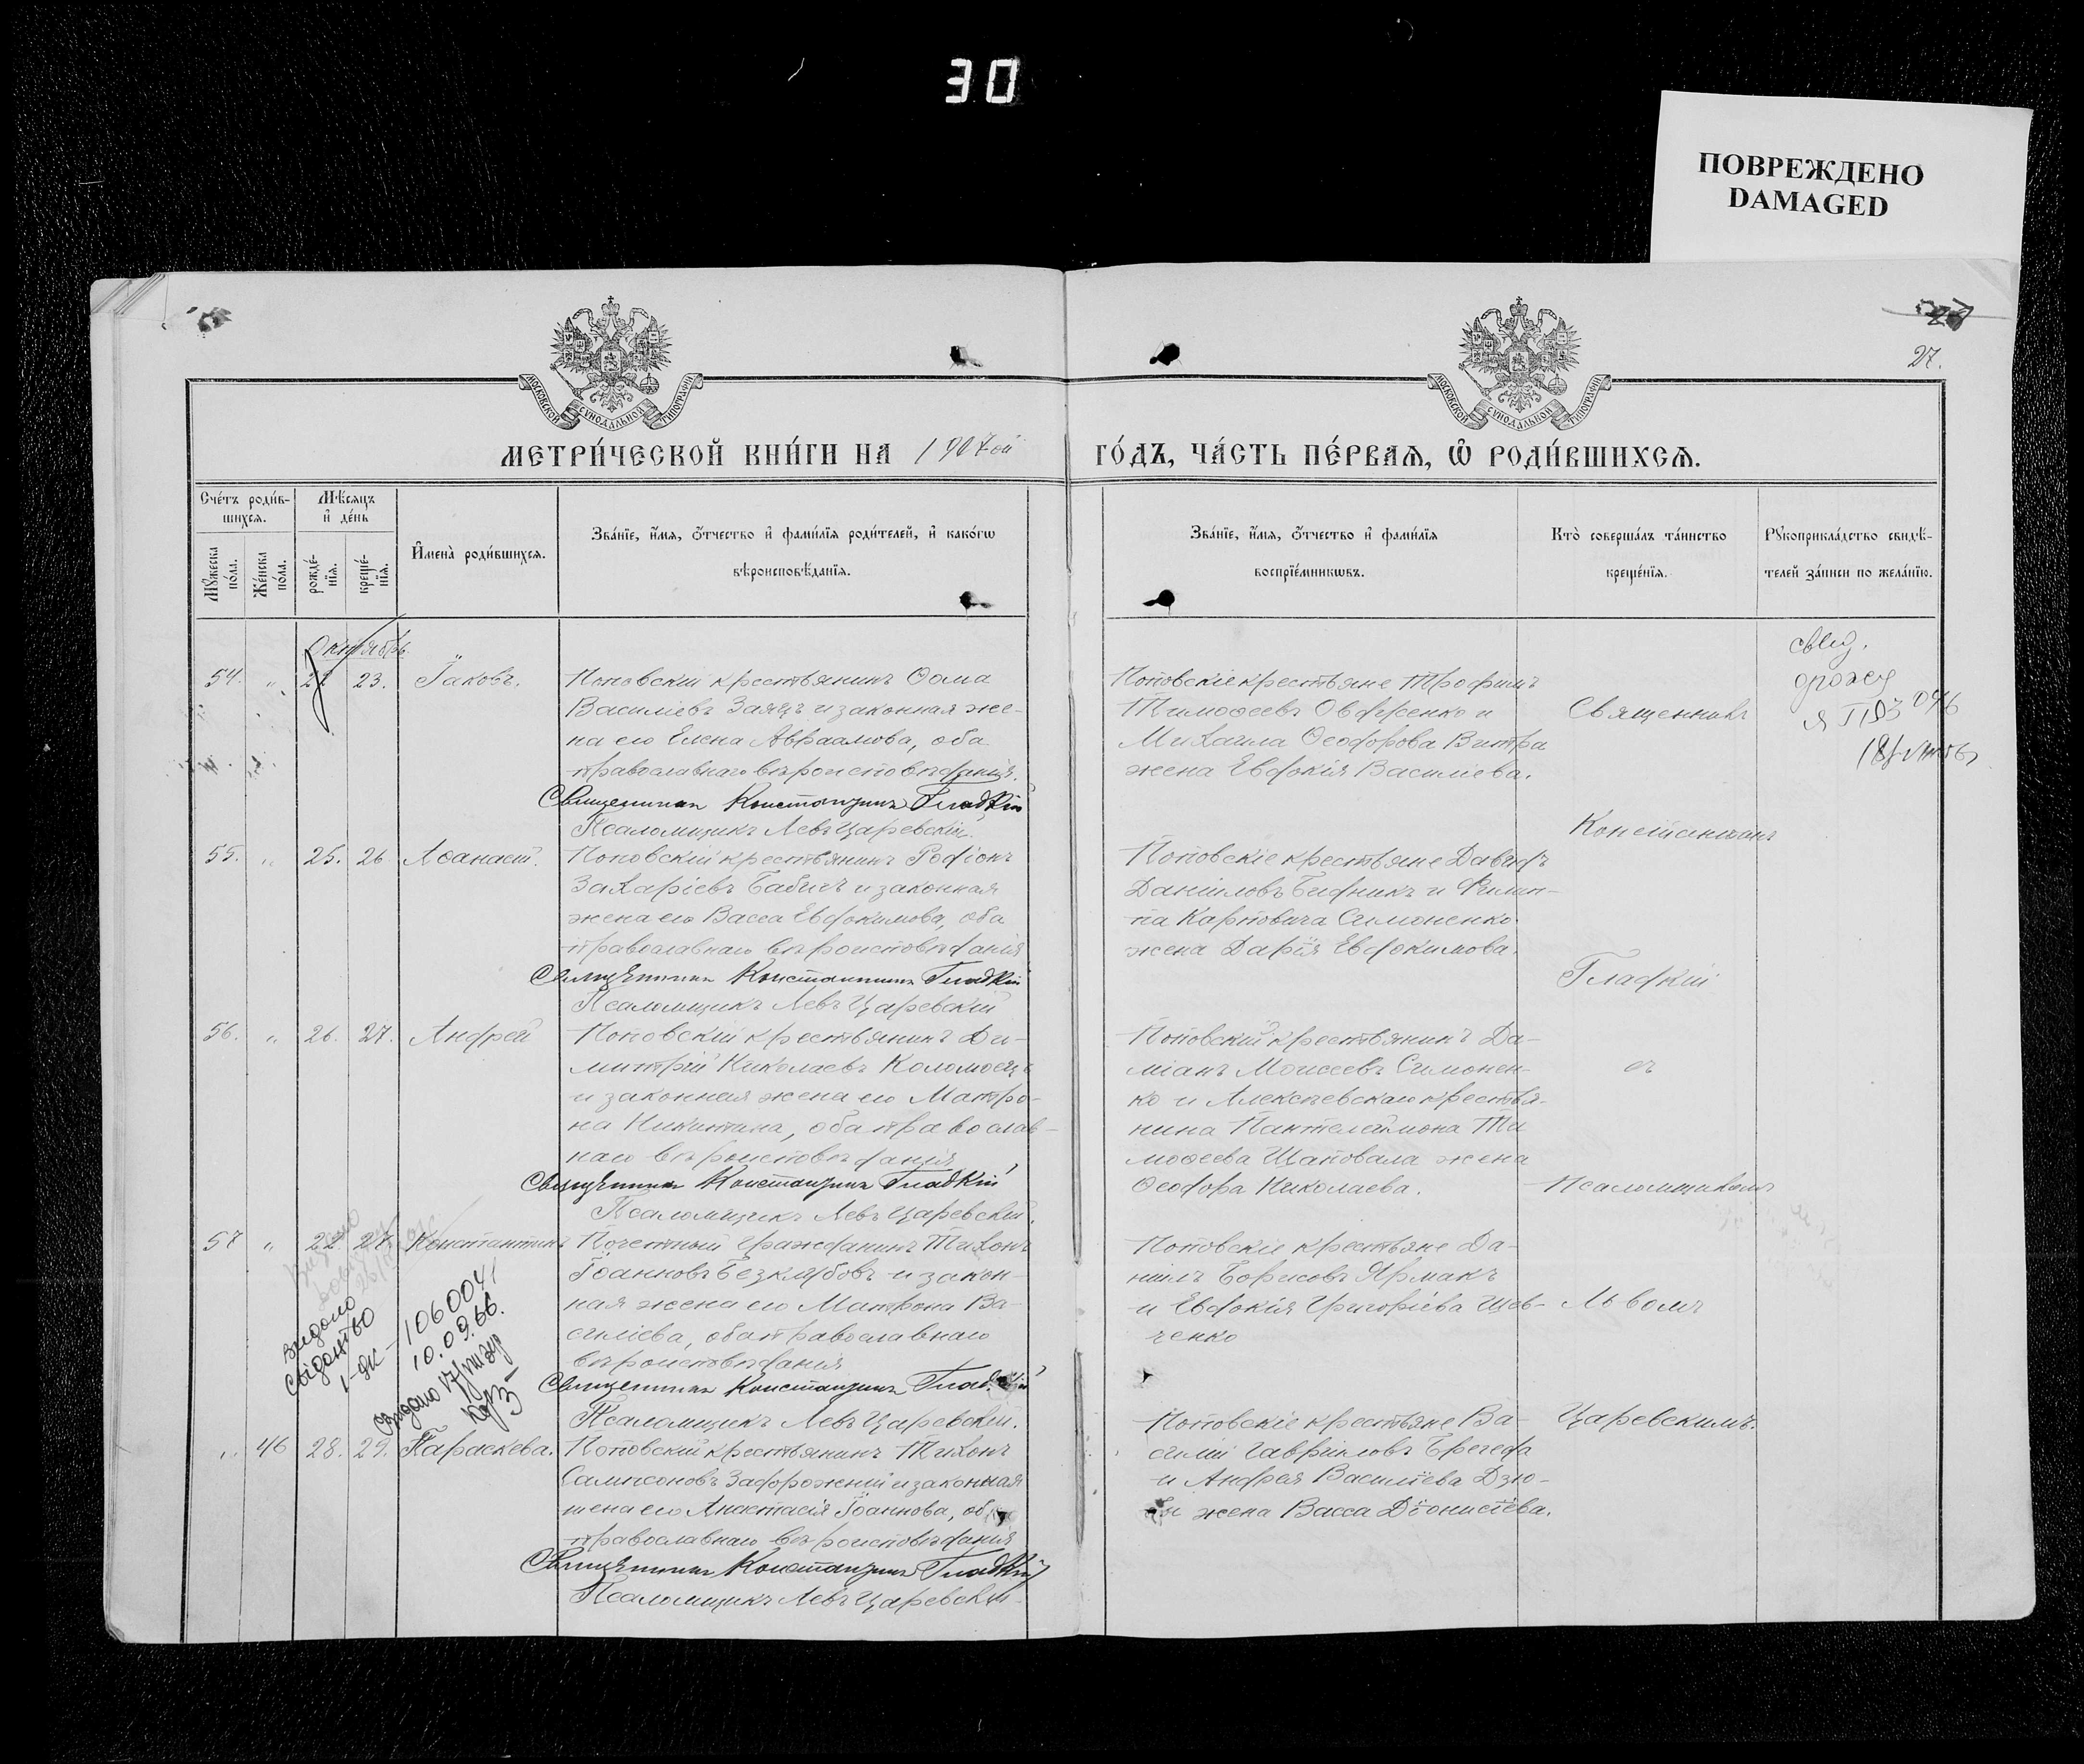 30
ПОВРЕЖДЕНО
DAMAGED
27
27.
МОСКОВСКОЙ СУНОДАЛЬНОЙ ТИПОГРАФІИ
МОСКОВСКОЙ СУНОДАЛЬНОЙ ТИПОГРАФІИ
МЕТРИ́ЧЕСКОЙ КНИ́ГИ НА 1907ой
ГО́ДЪ, ЧА́СТЬ ПЕ́РВАѦ, Ѿ РОДИ́ВШИХСѦ.
Сче́тъ роди́в-
шихсѧ.
Мѣ́сѧцъ
и҆ де́нь
Мꙋ́жеска
по́ла.
Же́нска
по́ла.
рожде́-
нїѧ.
креще́-
нїѧ.
И҆мена̀ роди́вшихсѧ.
Зва́нїе, и҆́мѧ, ѻ҆́тчество и҆ фами́лїѧ роди́телей, и҆ како́гѡ
вѣроисповѣ́данїѧ.
Зва́нїе, и҆́мѧ, ѻ҆́тчество и҆ фами́лїѧ
воспрїе́мникѡвъ.
Кто̀ соверша́лъ та́инство
креще́нїѧ.
Рꙋкоприкла́дство свидѣ́-
телей за́писи по жела́нїю.
Октябрь
54. „ 22 23. Іаковъ.
Поповскій крестьянинъ Ѳома
Василіевъ Заяцъ и законная же-
на его Елена Авраамова, оба
православнаго вѣроисповѣданія.
Священникъ Константинъ Гладкій
Псаломщикъ Левъ Царевскій.
Поповскіе крестьяне Трофимъ
Тимоѳеевъ Овдѣенко и
Михаила Ѳеодорова Витра
жена Евдокія Василіева.
Священникъ
Константинъ
Гладкій
съ
Псаломщикомъ
Львомъ
Царевскимъ.
55. „ 25. 26 Аѳанасій.
Поповскій крестьянинъ Родіонъ
Захаріевъ Бабичъ и законная
жена его Васса Евдокимова, оба
православнаго вѣроисповѣданія
Священникъ Константинъ Гладкій
Псаломщикъ Левъ Царевскій
Поповскіе крестьяне Давидъ
Даніиловъ Бидникъ и Филип-
па Карповича Симоненко
жена Дарія Евдокимова.
56. „ 26. 27. Андрей
Поповскій крестьянинъ Ди-
митрій Николаевъ Коломоецъ
и законная жена его Матро-
на Никитина, оба православ-
наго вѣроисповѣданія
Священникъ Константинъ Гладкій
Псаломщикъ Левъ Царевскій.
Поповскій крестьянинъ Да-
міанъ Моисеевъ Симонен-
ко и Алексѣевскаго крестья-
нина Пантелеймона Ти
моѳеева Шаповала жена
Ѳеодора Николаева.
57 „ 22 27 Константинъ
Почетный гражданинъ Тихонъ
Іоанновъ Безклубовъ и закон-
ная жена его Матрона Ва-
силіева, оба православнаго
вѣроисповѣданія
Священникъ Константинъ Гладкій
Псаломщикъ Левъ Царевскій.
Поповскіе крестьяне Да-
ніилъ Борисовъ Ярмакъ
и Евдокія Григоріева Шев-
ченко
видано
свідоцтво
1-ЯК - 106004
10.09.66.
„ 46 28. 29. Параскева.
Поповскій крестьянинъ Тихонъ
Сампсоновъ Задорожній и законная
жена его Анастасія Іоаннова, оба
православнаго вѣроисповѣданія
Священникъ Константинъ Гладкій
Псаломщикъ Левъ Царевскій
Поповскіе крестьяне Ва-
силій Гавріиловъ Брегеда
и Андрея Василіева Дзю-
бы жена Васса Діонисіева.